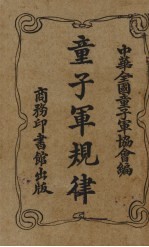 中華全國童子軍協會編
童子軍規律
商務印書館出版